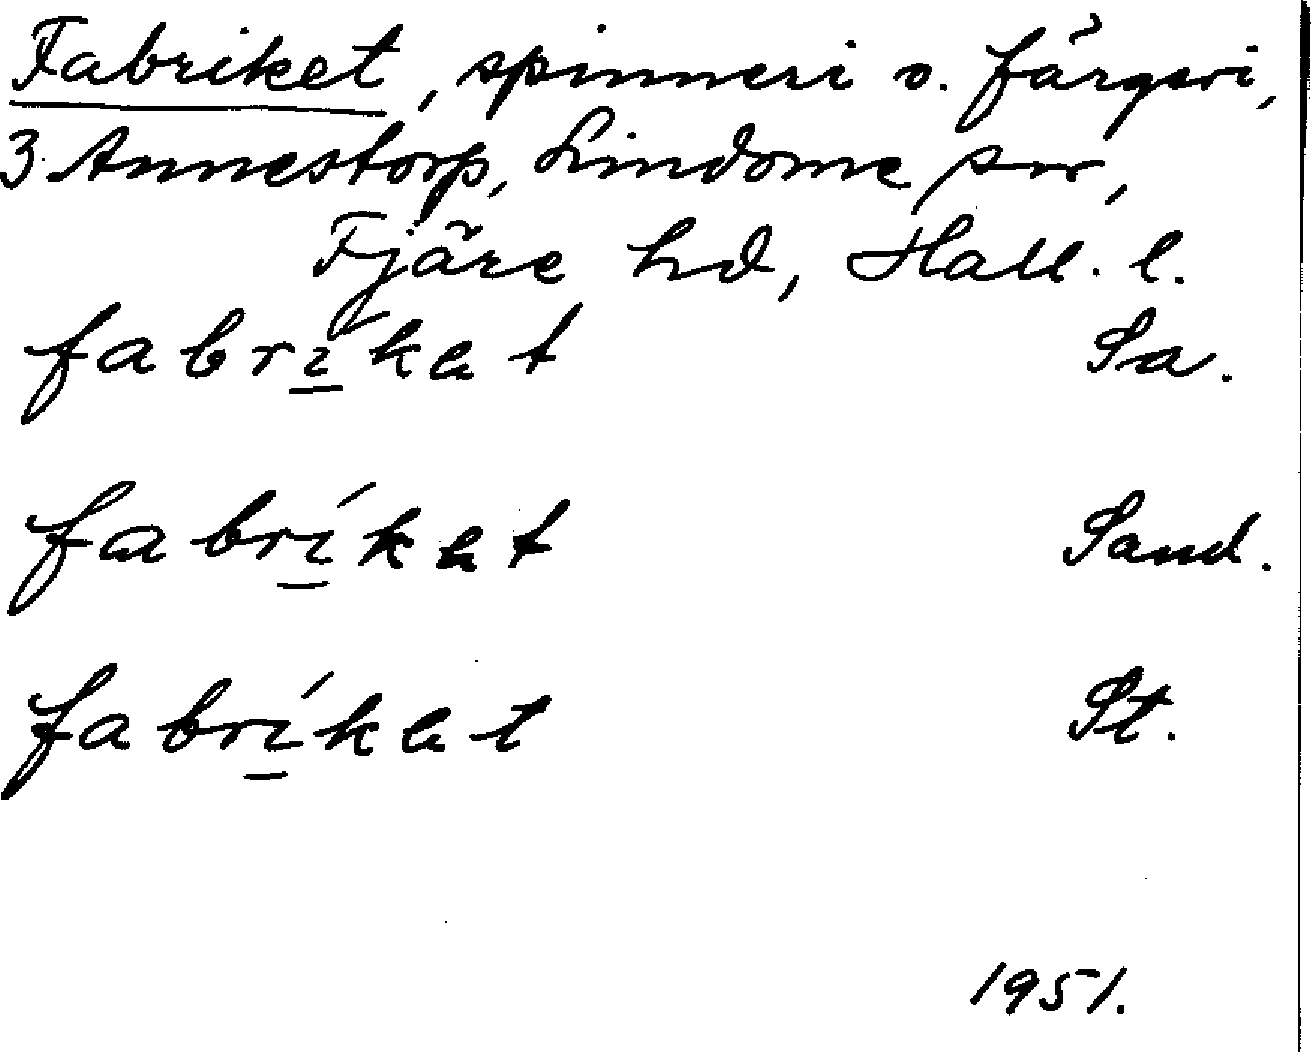 Fabriket, spinneri o. färgeri,
3 Annestorp, Lindome sn,
Fjäre hd, Hall. l.
fabriket Sa.
fabríket Sand.
fabríket St.
1951.